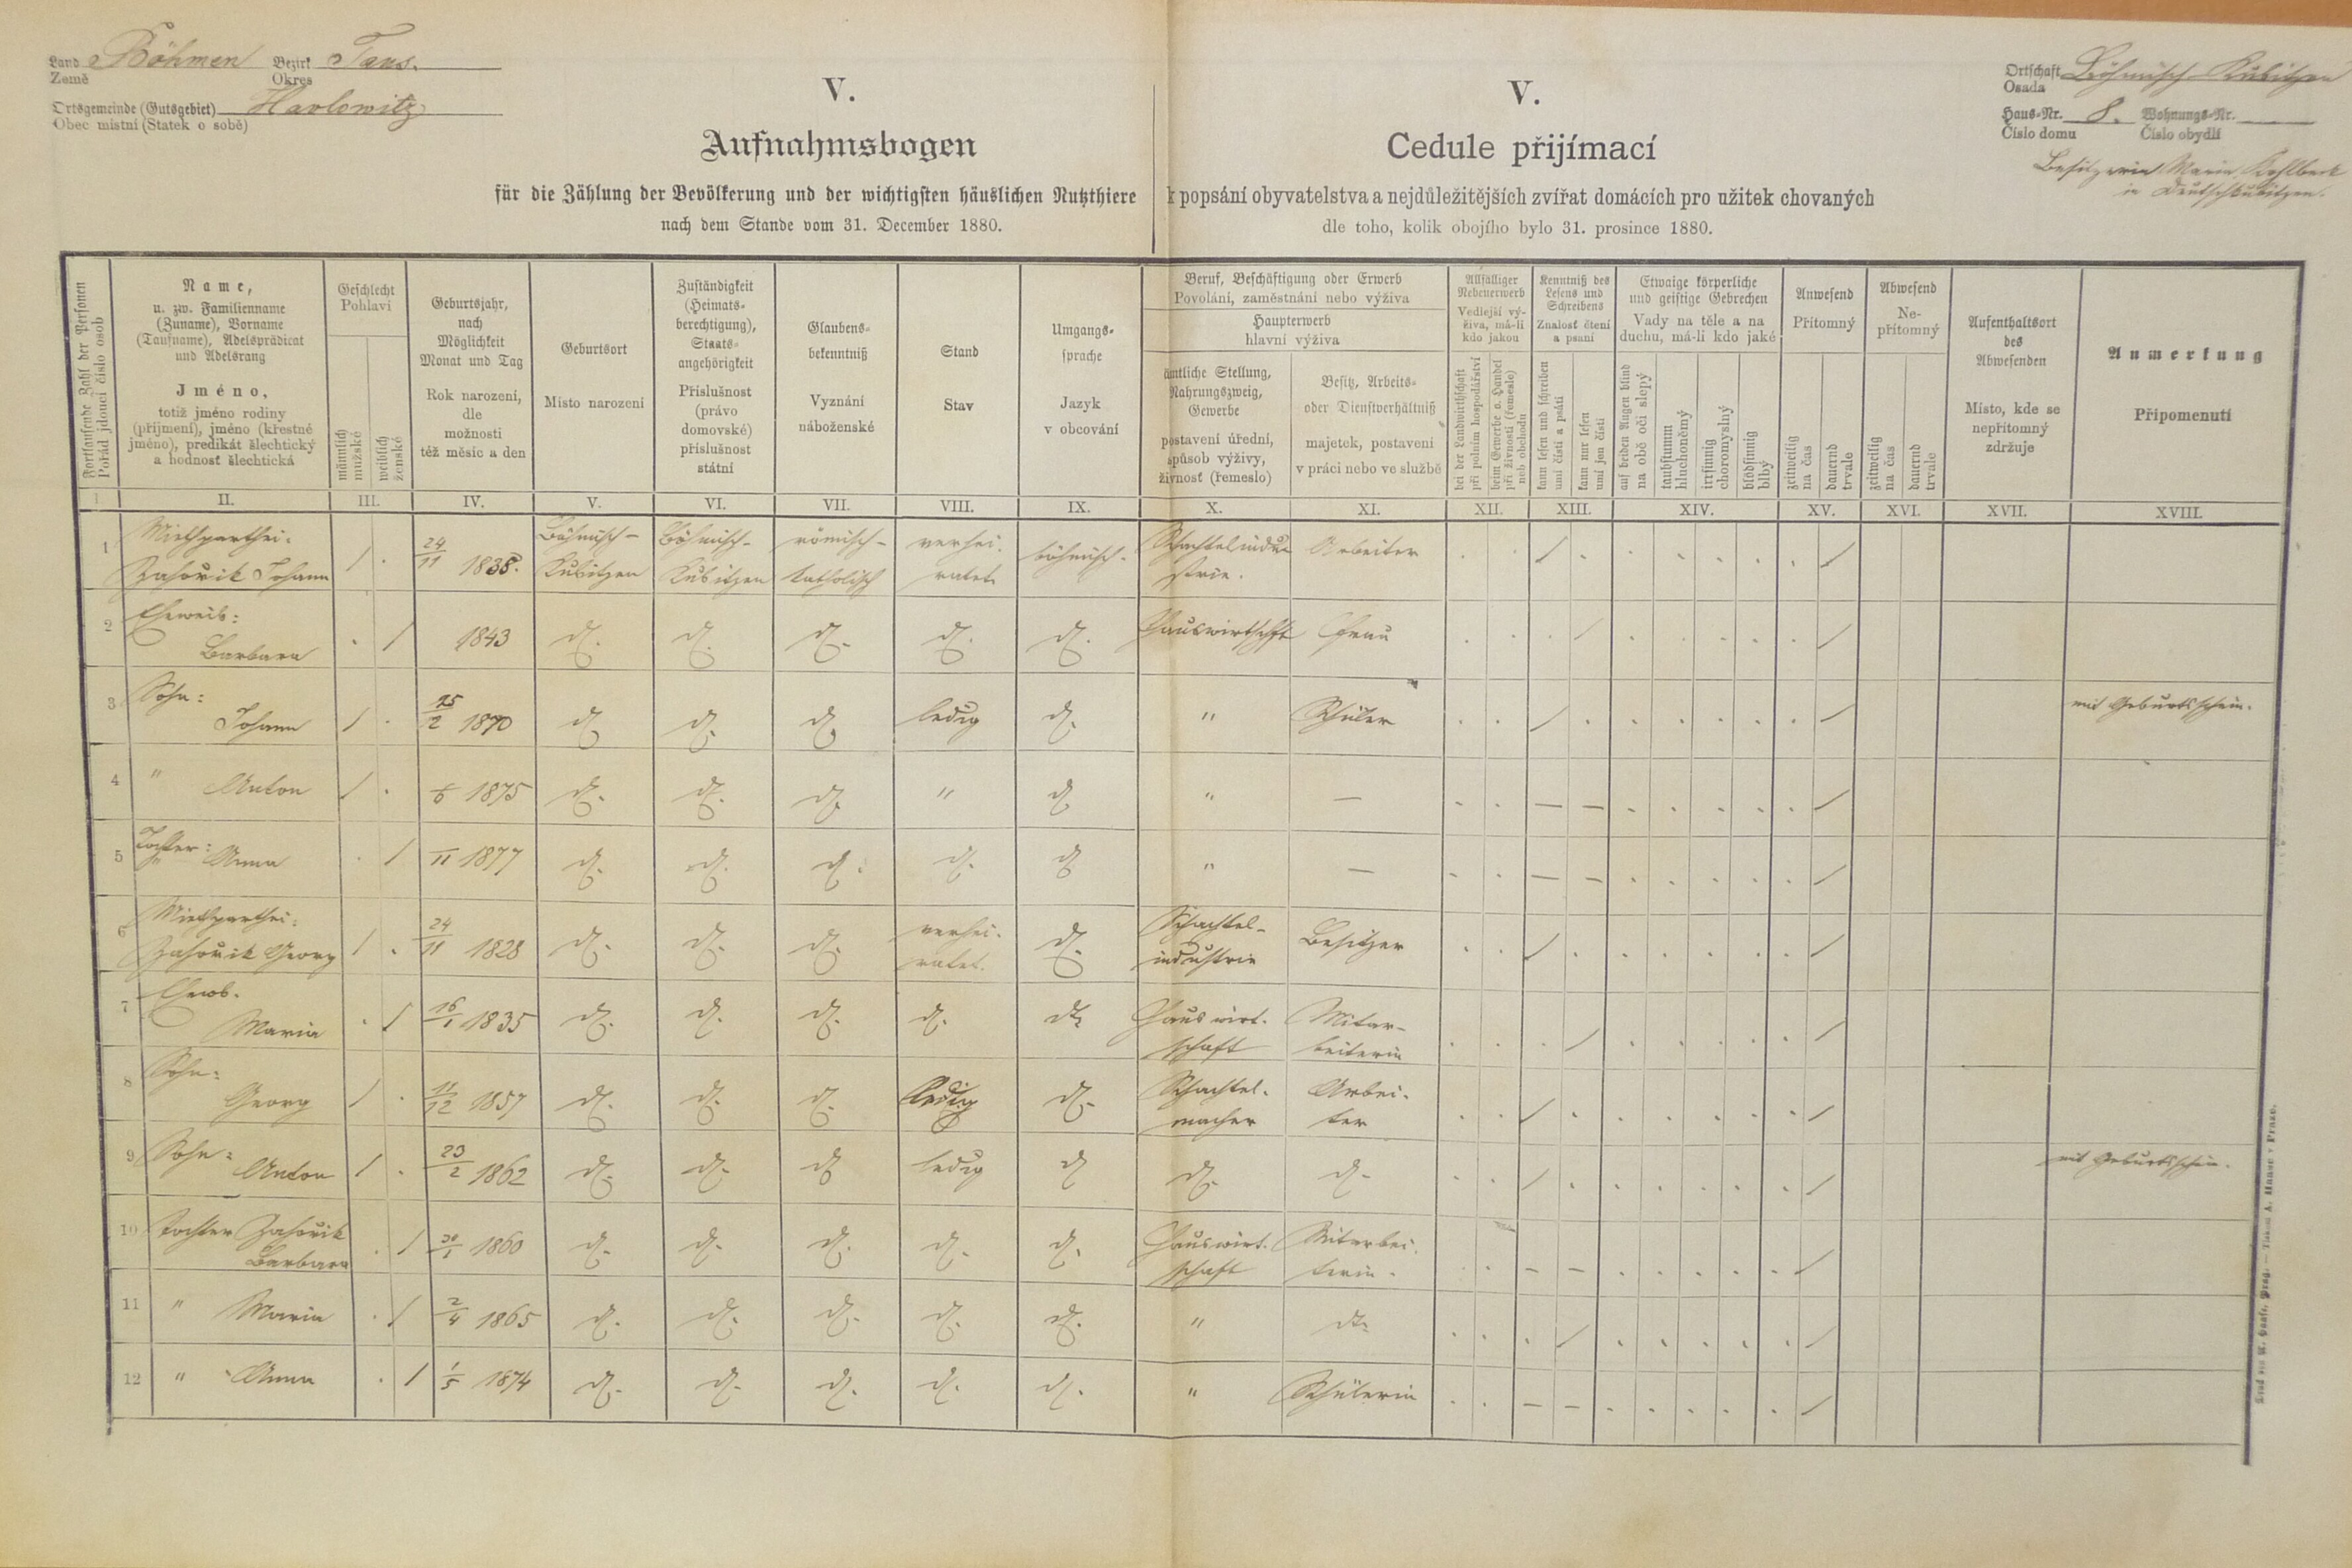 Land Böhmen Bezirk Taus.
Země Okres
Ortsgemeinde (Gutsgebiet) Havlowitz
Obec místní (Statek o sobě)
V.
Aufnahmsbogen
für die Zählung der Bevölkerung und der wichtigsten häuslichen Nutzthiere
nach dem Stande vom 31. December 1880.
V.
Cedule přijímací
k popsání obyvatelstva a nejdůležitějších zvířat domácích pro užitek chovaných
dle toho, kolik obojího bylo 31. prosince 1880.
Ortschaft Böhmisch Kubitzen
Osada
Haus-Nr. 8. Wohnungs-Nr.
Číslo domu Číslo obydlí
Besitzerin Maria Kohlbeck
in Deutschkubitzen.
Fortlaufende Zahl der Personen
Pořád jdoucí číslo osob
Name,
u. zw. Familienname
(Zuname), Vorname
(Taufname), Adelsprädicat
und Adelsrang
Jméno,
totiž jméno rodiny
(příjmení), jméno (křestné
jméno), predikát šlechtický
a hodnosť šlechtická
Geschlecht
Pohlaví
männlich
mužské
weiblich
ženské
Geburtsjahr,
nach
Möglichkeit
Monat und Tag
Rok narození,
dle
možnosti
též měsíc a den
Geburtsort
Místo narození
Zuständigkeit
(Heimats-
berechtigung),
Staats-
angehörigkeit
Příslušnost
(právo
domovské)
příslušnost
státní
Glaubens-
bekenntniß
Vyznání
náboženské
Stand
Stav
Umgangs-
sprache
Jazyk
v obcování
Beruf, Beschäftigung oder Erwerb
Povolání, zaměstnání nebo výživa
Haupterwerb
hlavní výživa
ämtliche Stellung,
Nahrungszweig,
Gewerbe
postavení úřední,
spůsob výživy,
živnosť (řemeslo)
Besitz, Arbeits-
oder Dienstverhältniß
majetek, postavení
v práci nebo ve službě
Allfälliger
Nebenerwerb
Vedlejší vý-
živa, má-li
kdo jakou
bei der Landwirthschaft
při polním hospodářství
beim Gewerbe o. Handel
při živnosti (řemeslo)
neb obchodu
Kenntniß des
Lesens und
Schreibens
Znalosť čtení
a psaní
kann lesen und schreiben
umí čísti a psáti
kann nur lesen
umí jen čísti
Etwaige körperliche
und geistige Gebrechen
Vady na těle a na
duchu, má-li kdo jaké
auf beiden Augen blind
na obě oči slepý
taubstumm
hluchoněmý
irrsinnig
choromyslný
blödsinnig
blbý
Anwesend
Přítomný
zeitweilig
na čas
dauernd
trvale
Abwesend
Ne-
přítomný
zeitweilig
na čas
dauernd
trvale
Aufenthaltsort
des
Abwesenden
Místo, kde se
nepřítomný
zdržuje
Anmerkung
Připomenutí
I II. III. IV. V. VI. VII. VIII. IX. X. XI. XII. XIII. XIV. XV. XVI. XVII. XVIII.
1 Miethparthei: 24/11 Böhmisch- Böhmisch- römisch- verhei- Schachtelindu- Arbeiter
Zahořik Johann / . 1838. Kubitzen Kubitzen katholisch ratet böhmisch. strie.
2 Eheweib:
Barbara . / 1843 d. d. d. d. d. Hauswirthschft Frau
3 Sohn: mit Geburtsschein.
Johann / . 25/2 1870 d. d. d. ledig d. " Schüler
4 " Anton / . /6 1875 d. d. d. " d. " —
5 Tochter: Anna . / /11 1877 d. d. d. d. d. " —
6 Miethparthei: 24/11 verhei- Schachtel- Besitzer
Zahořik Georg / . 1828 d. d. d. ratet. d. industrie
7 Ehewb.
Maria . / 16/1 1835 d. d. d. d. dto Hauswirt- Mitar-
schaft beiterin
8 Sohn: Schachtel- Arbei-
Georg / . 11/12 1857 d. d. d. ledig d. macher ter
9 Sohn: mit Geburtsschein.
Anton / . 23/2 1862 d. d. d. ledig d. d. d.
10 Tochter Zahořik Hauswirt- Mitarbei-
Barbara . / 20/1 1860 d. d. d. d. d. schaft terin.
11 " Maria . / 2/4 1865 d. d. d. d. d. " dto
12 " Anna . / 1/5 1874 d. d. d. d. d. " Schülerin
Druck von A. Haase, Prag. — Tiskem A. Haase v Praze.